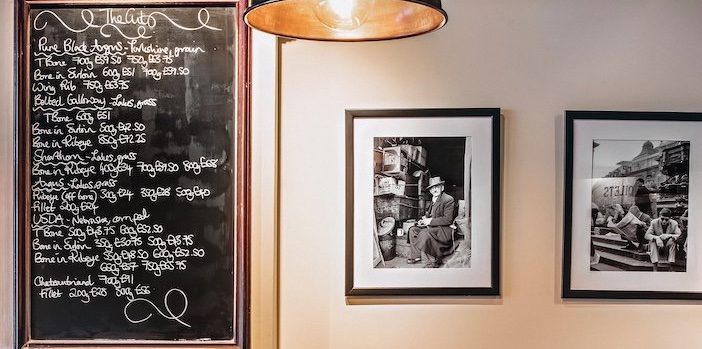 The Cut
Pure Black Angus - Yorkshire, grain
T Bone 700g £59.50 750g £63.75
Bone in Sirloin 600g £51 700g £59.50
Wing Rib 750g £63.75
Belted Galloway - Lakes, grass
T Bone 600g £51
Bone in Sirloin 500g £42.50
Bone in Ribeye 850g £72.25
Shorthorn - Lakes, grass
Bone in Ribeye 400g £34 700g £59.50 800g £68
Angus - Lakes, grass
Ribeye (off bone) 300g £24 350g £28 500g £40
Fillet 200g £24
USDA - Nebraska, corn fed
T Bone 500g £48.75
Bone in Sirloin 350g £30.75 500g £48.75
Bone in Ribeye 500g £48.75
750g £63.75
Chateaubriand 700g £91
Fillet 200g £28